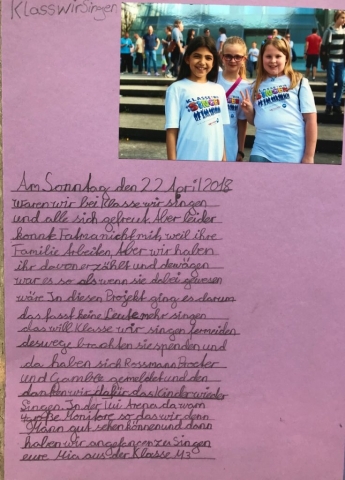 Klasse Wir Singen
KLASSE WIR
SINGEN
Am Sonntag den 22 April 2018
waren wir bei Klasse wir singen
und alle sich gefreut. Aber leider
konnt Fatma nicht mit, weil ihre
Familie Arbeiten. Aber wir haben
ihr davon erzählt und deswägen
war es so als wenn sie dabei gewesen
wäre. In diesen Projekt ging es darum
das fasst keine Leute mehr singen
das will Klasse wir singen fermeiden
deswege brachten sie spenden und
da haben sich Rossmann Procter
und Gamble gemeldet und den
danken wir dafür das Kinder wieder
Singen. In der Tui Arena da warn
4 große Monitore so das wir denn
Mann gut sehen können und dann
haben wir angefangen zes Singen
eure Mia aus der Klasse M3